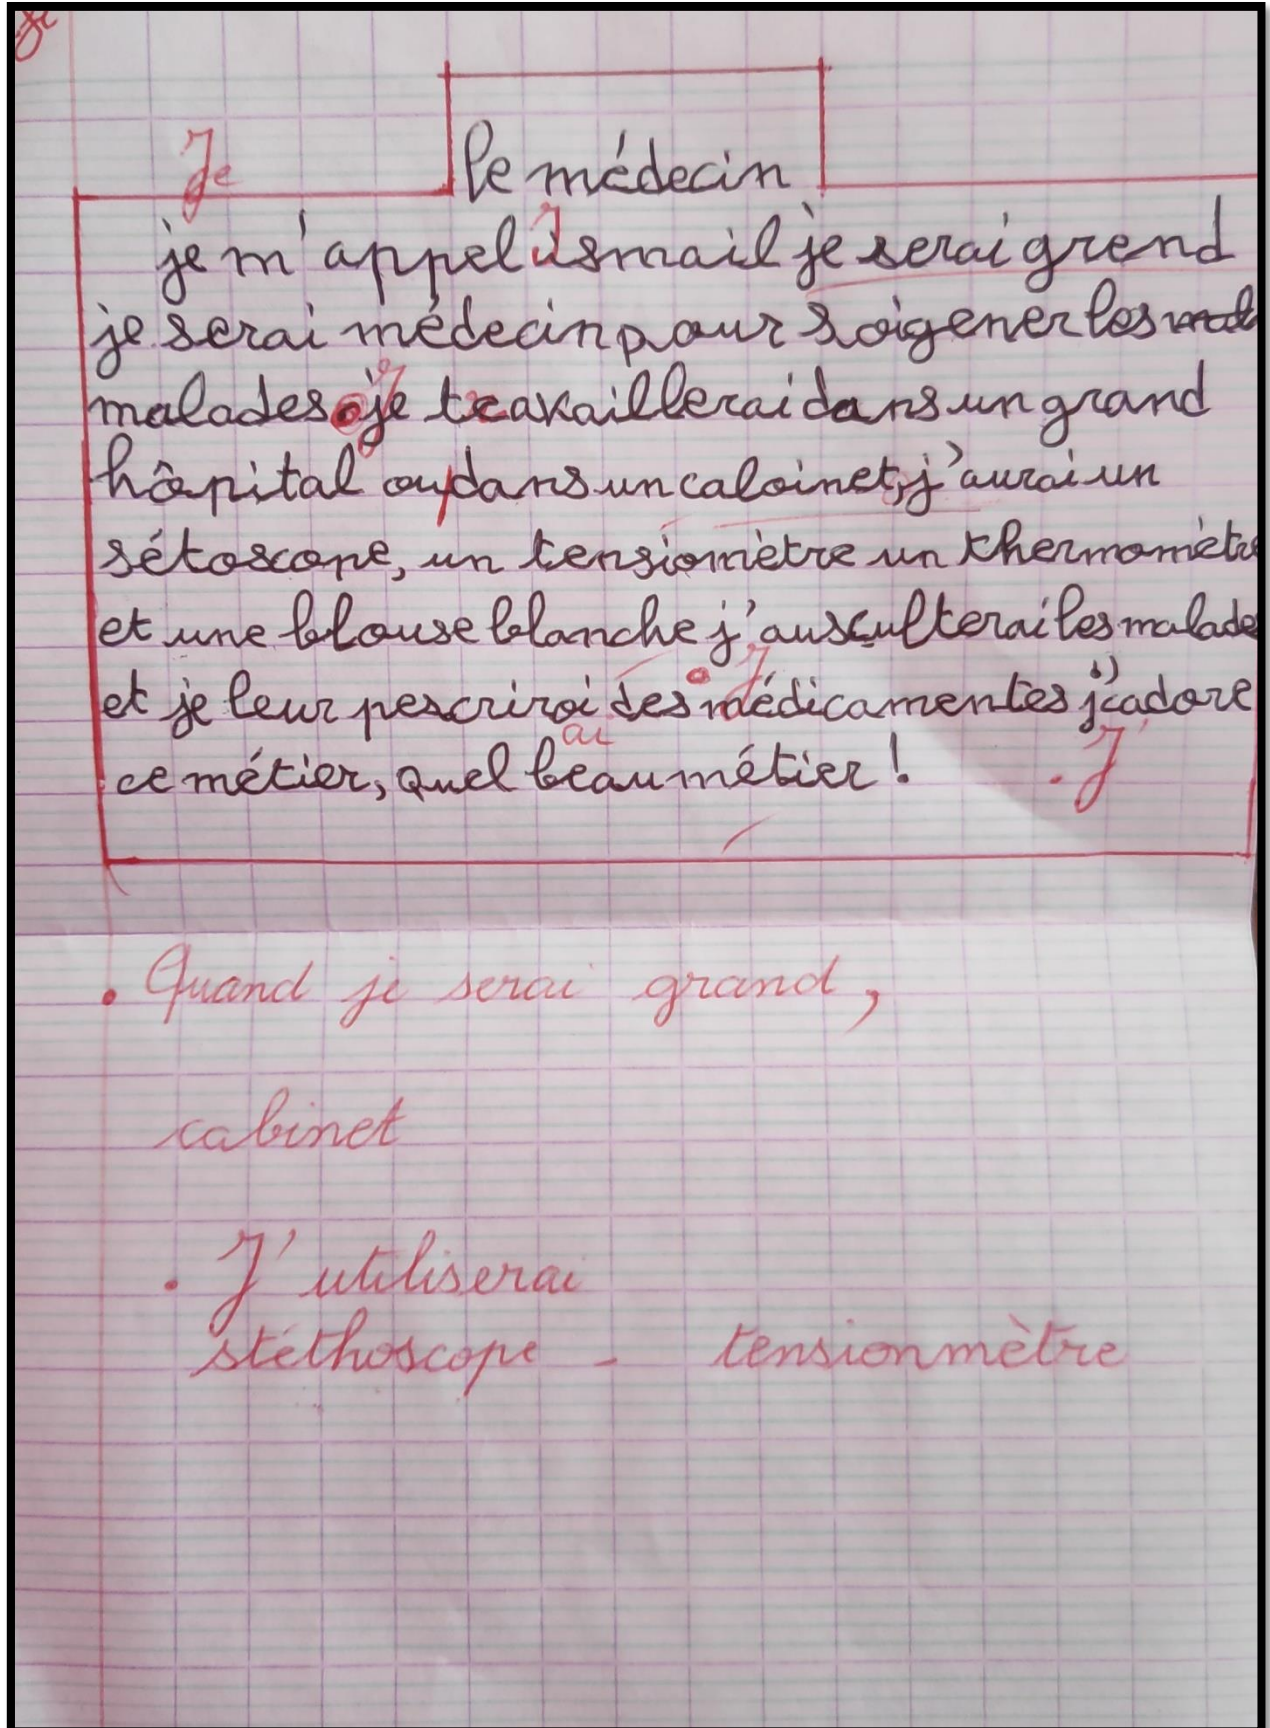 Je
le médecin
je m'appel ismail je serai grend
je serai médecin pour soigener les mal
malades. je travaillerai dans un grand
hôpital ou dans un caloinet, j'aurai un
sétoscope, un tensiomètre un thermomètre
et une blouse blanche j'ausculterai les malades
et je leur pescrirai des médicamentes j'adore
ai
ce métier, quel beau métier !
. J'
. Quand je serai grand,
cabinet
. J'utiliserai
stéthoscope - tensionmètre